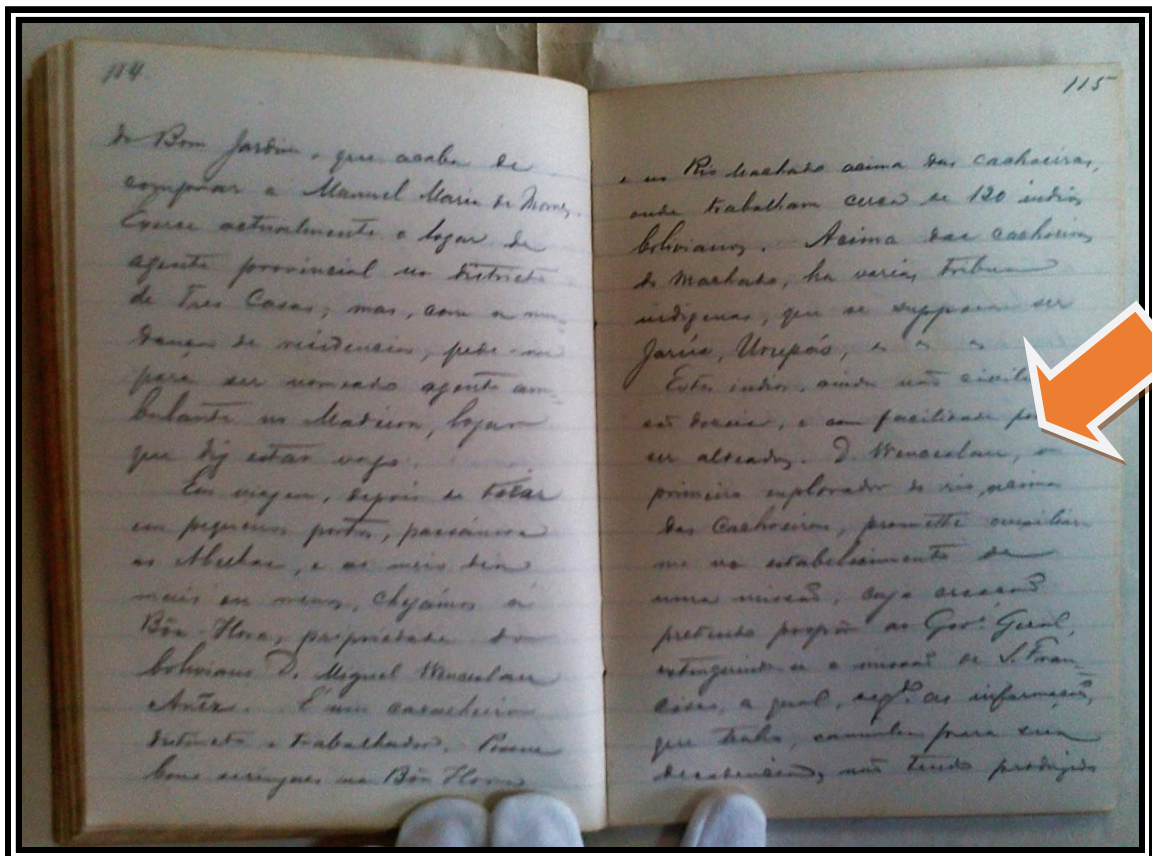 114
do Bom Jardim, que acaba de
comprar a Manuel Maria de Moraes.
Exerce actualmente o logar de
agente provincial no districto
de Tres Casas; mas, com a mu-
dança de residencia, pede-me
para ser nomeado agente am-
bulante no Madeira, logar
que diz estar vago.
Em viagem, depois de tocar
em pequenos portos, passámos
as Abelhas, e ao meio dia
mais ou menos, chegámos á
Bôa-Hora, propriedade do
boliviano D. Miguel Wenceslau
Antez. É um cavalheiro
distincto e trabalhador. Possue
bons seringaes na Bôa Hora
115
e no Rio Machado acima das cachoeiras,
onde trabalham cerca de 120 indios
bolivianos. Acima das cachoeiras
do Machado, ha varias tribus
indigenas, que se suppoem ser
Jarúa, Urupás, e
Estes indios, ainda não
são doceis, e com facilidade
ser aldeados. D. Wenceslau, o
primeiro explorador do rio, acima
das Cachoeiras, promette auxiliar-
me no estabelecimento de
uma missão, cuja creação
pretendo propôr ao Gov.º Geral,
extinguindo-se a missão de S. Fran-
cisco, a qual, seg.do as informações,
que tenho, caminha para sua
decadencia, não tendo produzido